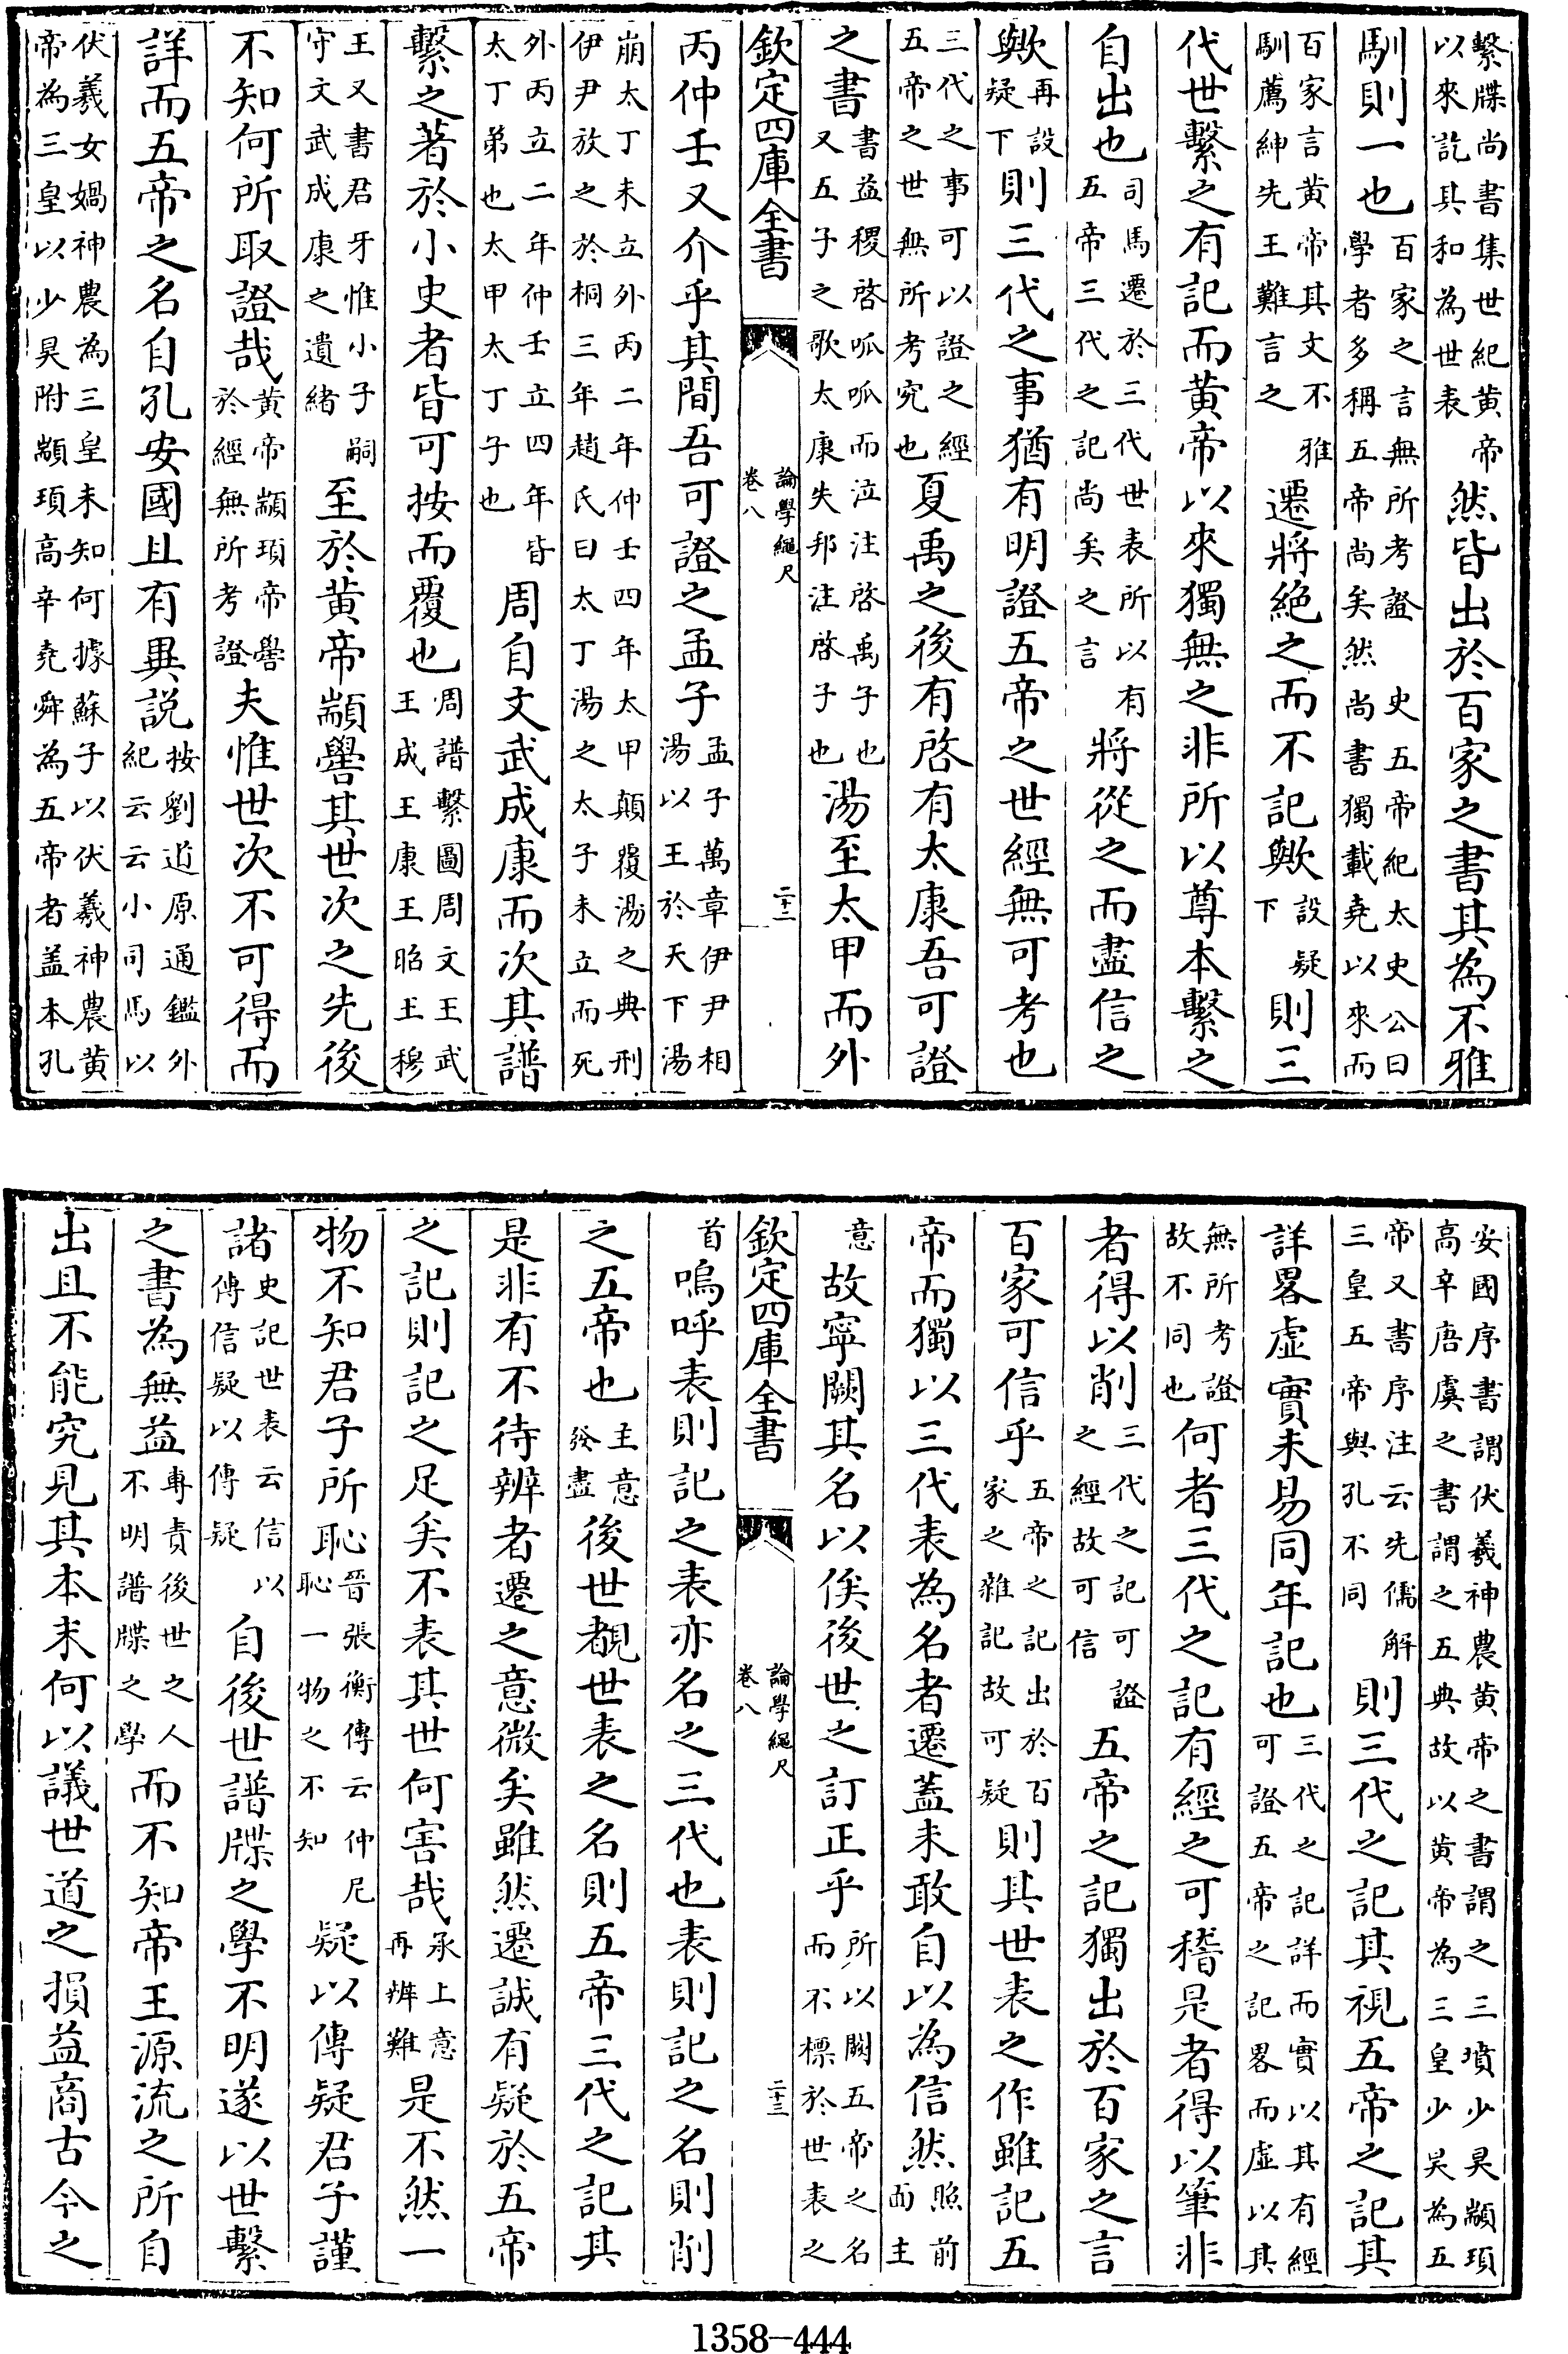 繫牒尚書集世紀黄帝以來訖共和為世表然皆出於百家之書其為不雅
馴則一也百家之言無所考證史五帝紀太史公曰學者多稱五帝尚矣然尚書獨載堯以來而
百家言黄帝其文不雅馴薦紳先王難言之遷將絶之而不記歟設疑下則三
代世繫之有記而黄帝以來獨無之非所以尊本繫之
自出也司馬遷於三代世表所以有五帝三代之記尚矣之言將從之而盡信之
歟再設疑下則三代之事猶有明證五帝之世經無可考也
三代之事可以證之經五帝之世無所考究也夏禹之後有啓有太康吾可證
之書書益稷啓呱呱而泣注啓禹子也又五子之歌太康失邦注啓子也湯至太甲而外
欽定四庫全書
論學繩尺
卷八
二十二
丙仲壬又介乎其間吾可證之孟子孟子萬章伊尹相湯以王於天下湯
崩太丁未立外丙二年仲壬四年太甲顛覆湯之典刑伊尹放之於桐三年趙氏曰太丁湯之太子未立而死
外丙立二年仲壬立四年皆太丁弟也太甲太丁子也周自文武成康而次其譜
繫之著於小史者皆可按而覆也周譜繫圖周文王武王成王康王昭王穆
王又書君牙惟小子嗣守文武成康之遺緒至於黄帝顓嚳其世次之先後
不知何所取證哉黄帝顓頊帝嚳於經無所考證夫惟世次不可得而
詳而五帝之名自孔安國且有異說按劉道原通鑑外紀云云小司馬以
伏羲女媧神農為三皇未知何據蘇子以伏羲神農黄帝為三皇以少昊附顓頊高辛堯舜為五帝者盖本孔
安國序書謂伏羲神農黄帝之書謂之三墳少昊顓頊高辛唐虞之書謂之五典故以黄帝為三皇少昊為五
帝又書序注云先儒解三皇五帝與孔不同則三代之記其視五帝之記其
詳畧虛實未易同年記也三代之記詳而實以其有經可證五帝之記畧而虛以其
無所考證故不同也何者三代之記有經之可稽是者得以筆非
者得以削三代之記可證之經故可信五帝之記獨出於百家之言
百家可信乎五帝之記出於百家之雜記故可疑則其世表之作雖記五
帝而獨以三代表為名者遷蓋未敢自以為信然照前面主
意故寧闕其名以俟後世之訂正乎所以闕五帝之名而不標於世表之
欽定四庫全書
論學繩尺
卷八
二十三
首嗚呼表則記之表亦名之三代也表則記之名則削
之五帝也主意發盡後世覩世表之名則五帝三代之記其
是非有不待辨者遷之意微矣雖然遷誠有疑於五帝
之記則記之足矣不表其世何害哉承上意再辨難是不然一
物不知君子所恥晉張衡傳云仲尼恥一物之不知疑以傳疑君子謹
諸史記世表云信以傳信疑以傳疑自後世譜牒之學不明遂以世繫
之書為無益專責後世之人不明譜牒之學而不知帝王源流之所自
出且不能究見其本末何以議世道之損益商古今之
1358-444